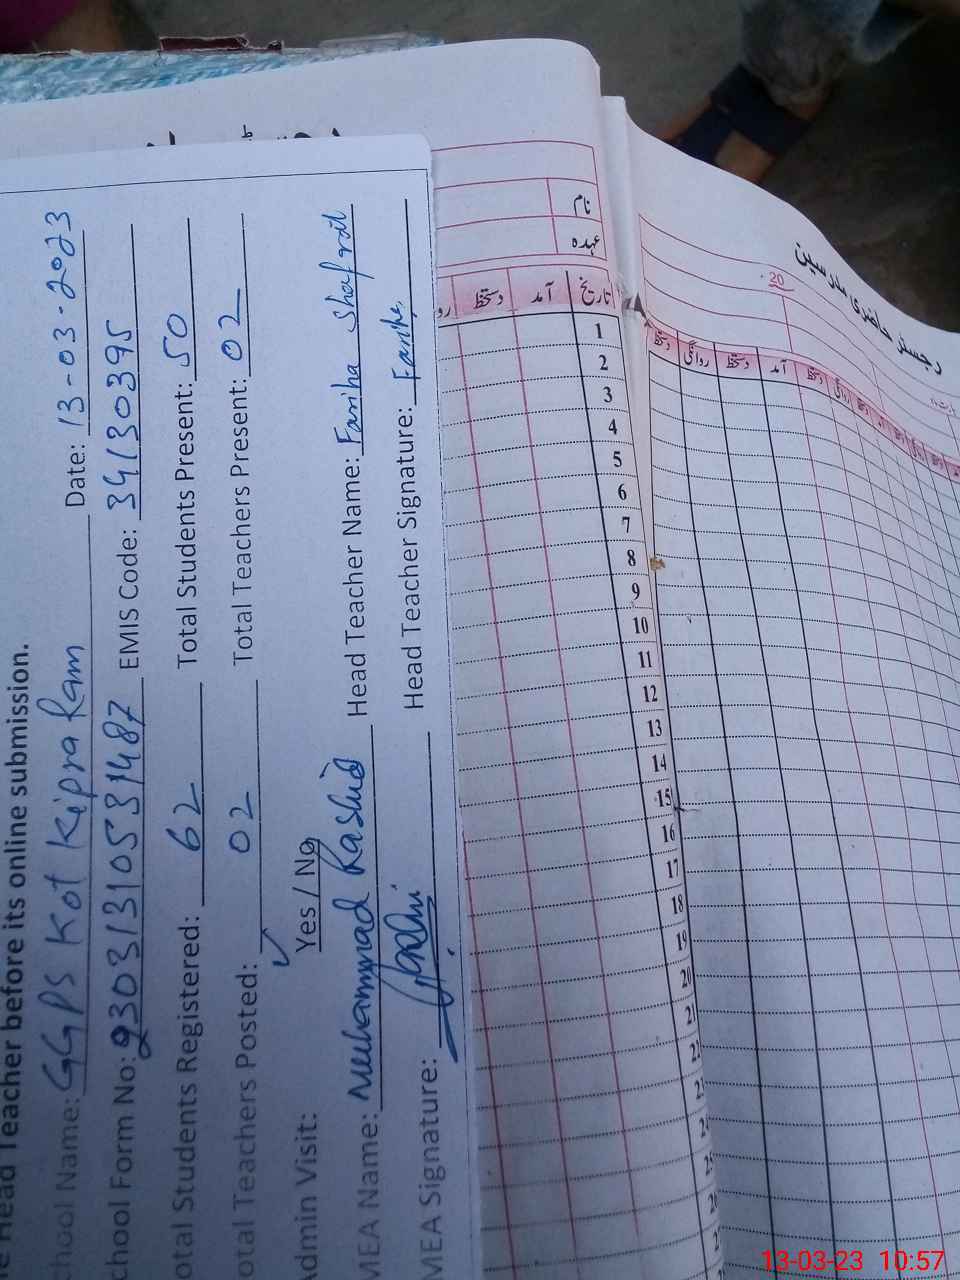 e Head Teacher before its online submission.
chool Name: GGPS Kot Kipra Ram Date: 13-03-2023
chool Form No: 93031310531487 EMIS Code: 34130395
otal Students Registered: 62 Total Students Present: 50
otal Teachers Posted: 02 Total Teachers Present: 02
Admin Visit: Yes / No
MEA Name: Muhammad Rashid Head Teacher Name: Fariha Shafqat
MEA Signature: Head Teacher Signature: Fariha
نام
عہدہ
تاریخ آمد دستخط
1
2
3
4
5
6
7
8
9
10
11
12
13
14
15
16
17
18
19
20
21
22
رجسٹر حاضری مدرسین
20
دستخط روانگی دستخط آمد دستخط
13-03-23 10:57